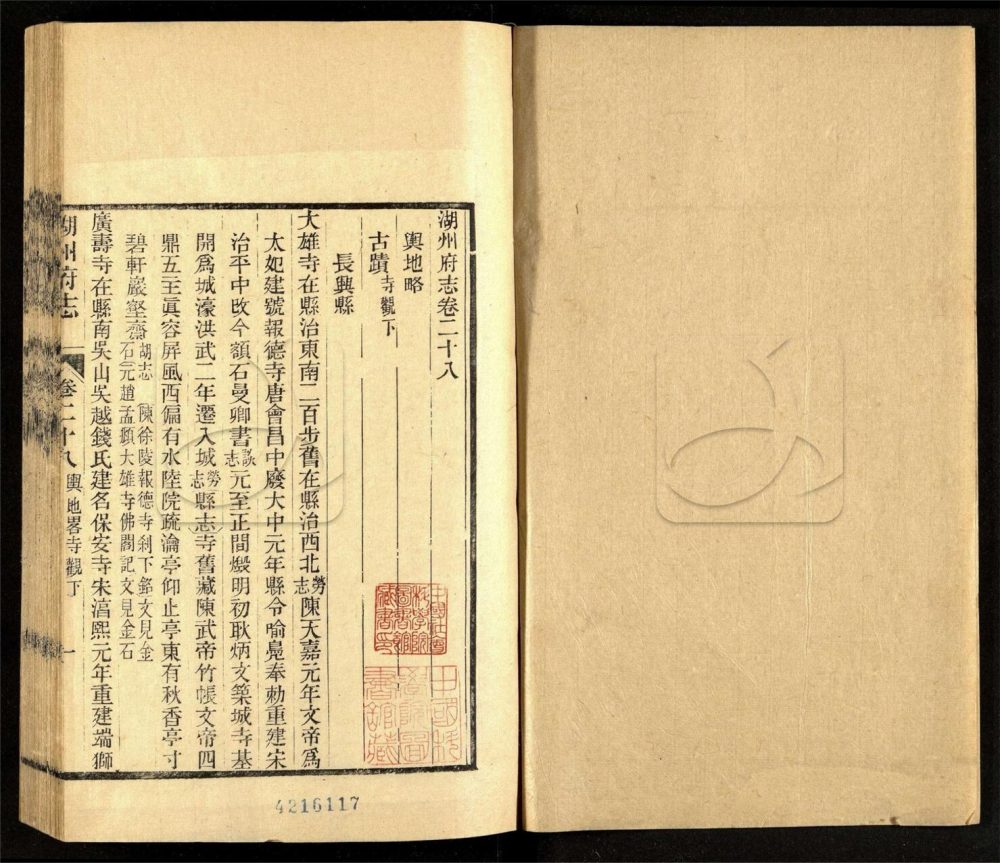 湖州府志卷二十八
輿地略
古蹟寺觀下
長興縣
大雄寺在縣治東南二百步舊在縣治西北勞志陳天嘉元年文帝爲
太妃建號報德寺唐會昌中廢大中元年縣令喻鳧奉勅重建宋
治平中改今額石曼卿書談志元至正間燬明初耿炳文築城寺基
開爲城濠洪武二年遷入城勞志縣志寺舊藏陳武帝竹帳文帝四
鼎五主眞容屏風西偏有水陸院疏瀹亭仰止亭東有秋香亭寸
碧軒巖壑齋胡志
陳徐陵報德寺刹下銘文見金
石元趙孟頫大雄寺佛閣記文見金石
廣壽寺在縣南吳山吳越錢氏建名保安寺宋淳熙元年重建端獅
湖州府志
卷二十八
輿地畧寺觀下
一
中國科學院圖書館藏
4216117